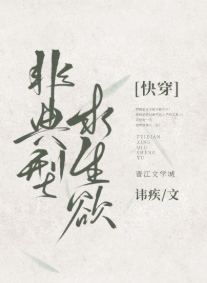 非典型
求生欲
[快穿]
FEIDIAN
XING
QIU
SHENG
YU
晋江文学城
讳疾/文